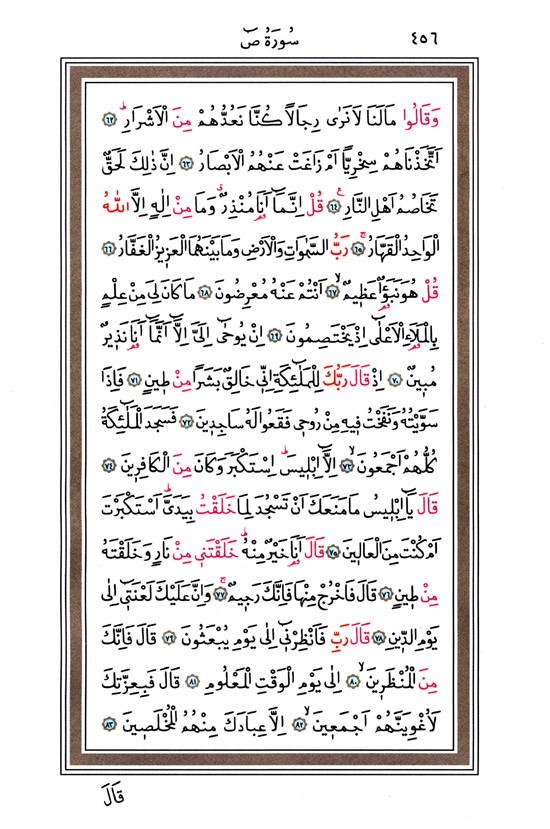 ٤٥٦ سُورَةُ صٓ
وَقَالُوا مَالَنَا لَا نَرٰى رِجَالًا كُنَّا نَعُدُّهُمْ مِنَ الْاَشْرَارِۜ ﴿٦٢﴾
اَتَّخَذْنَاهُمْ سِخْرِيًّا اَمْ زَاغَتْ عَنْهُمُ الْاَبْصَارُ ﴿٦٣﴾ اِنَّ ذٰلِكَ لَحَقٌّ
تَخَاصُمُ اَهْلِ النَّارِ۟ ﴿٦٤﴾ قُلْ اِنَّمَٓا اَنَا۬ مُنْذِرٌۗ وَمَا مِنْ اِلٰهٍ اِلَّا اللّٰهُ
الْوَاحِدُ الْقَهَّارُۚ ﴿٦٥﴾ رَبُّ السَّمٰوَاتِ وَالْاَرْضِ وَمَا بَيْنَهُمَا الْعَزِيزُ الْغَفَّارُ ﴿٦٦﴾
قُلْ هُوَ نَبَؤٌ۬ا عَظِيمٌۙ ﴿٦٧﴾ اَنْتُمْ عَنْهُ مُعْرِضُونَ ﴿٦٨﴾ مَا كَانَ لِيَ مِنْ عِلْمٍ
بِالْمَلَاِ الْاَعْلٰٓى اِذْ يَخْتَصِمُونَ ﴿٦٩﴾ اِنْ يُوحٰٓى اِلَيَّ اِلَّٓا اَنَّمَٓا اَنَا۬ نَذِيرٌ
مُبِينٌ ﴿٧٠﴾ اِذْ قَالَ رَبُّكَ لِلْمَلٰٓئِكَةِ اِنِّي خَالِقٌ بَشَرًا مِنْ طِينٍ ﴿٧١﴾ فَاِذَا
سَوَّيْتُهُ وَنَفَخْتُ فِيهِ مِنْ رُوحِي فَقَعُوا لَهُ سَاجِدِينَ ﴿٧٢﴾ فَسَجَدَ الْمَلٰٓئِكَةُ
كُلُّهُمْ اَجْمَعُونَۙ ﴿٧٣﴾ اِلَّٓا اِبْلِيسَۜ اِسْتَكْبَرَ وَكَانَ مِنَ الْكَافِرِينَ ﴿٧٤﴾
قَالَ يَٓا اِبْلِيسُ مَا مَنَعَكَ اَنْ تَسْجُدَ لِمَا خَلَقْتُ بِيَدَيَّۜ اَسْتَكْبَرْتَ
اَمْ كُنْتَ مِنَ الْعَالِينَ ﴿٧٥﴾ قَالَ اَنَا۬ خَيْرٌ مِنْهُۜ خَلَقْتَنِي مِنْ نَارٍ وَخَلَقْتَهُ
مِنْ طِينٍ ﴿٧٦﴾ قَالَ فَاخْرُجْ مِنْهَا فَاِنَّكَ رَجِيمٌۚ ﴿٧٧﴾ وَاِنَّ عَلَيْكَ لَعْنَتِٓي اِلٰى
يَوْمِ الدِّينِ ﴿٧٨﴾ قَالَ رَبِّ فَاَنْظِرْنِٓي اِلٰى يَوْمِ يُبْعَثُونَ ﴿٧٩﴾ قَالَ فَاِنَّكَ
مِنَ الْمُنْظَرِينَۙ ﴿٨٠﴾ اِلٰى يَوْمِ الْوَقْتِ الْمَعْلُومِ ﴿٨١﴾ قَالَ فَبِعِزَّتِكَ
لَاُغْوِيَنَّهُمْ اَجْمَعِينَۙ ﴿٨٢﴾ اِلَّا عِبَادَكَ مِنْهُمُ الْمُخْلَصِينَ ﴿٨٣﴾
قَالَ